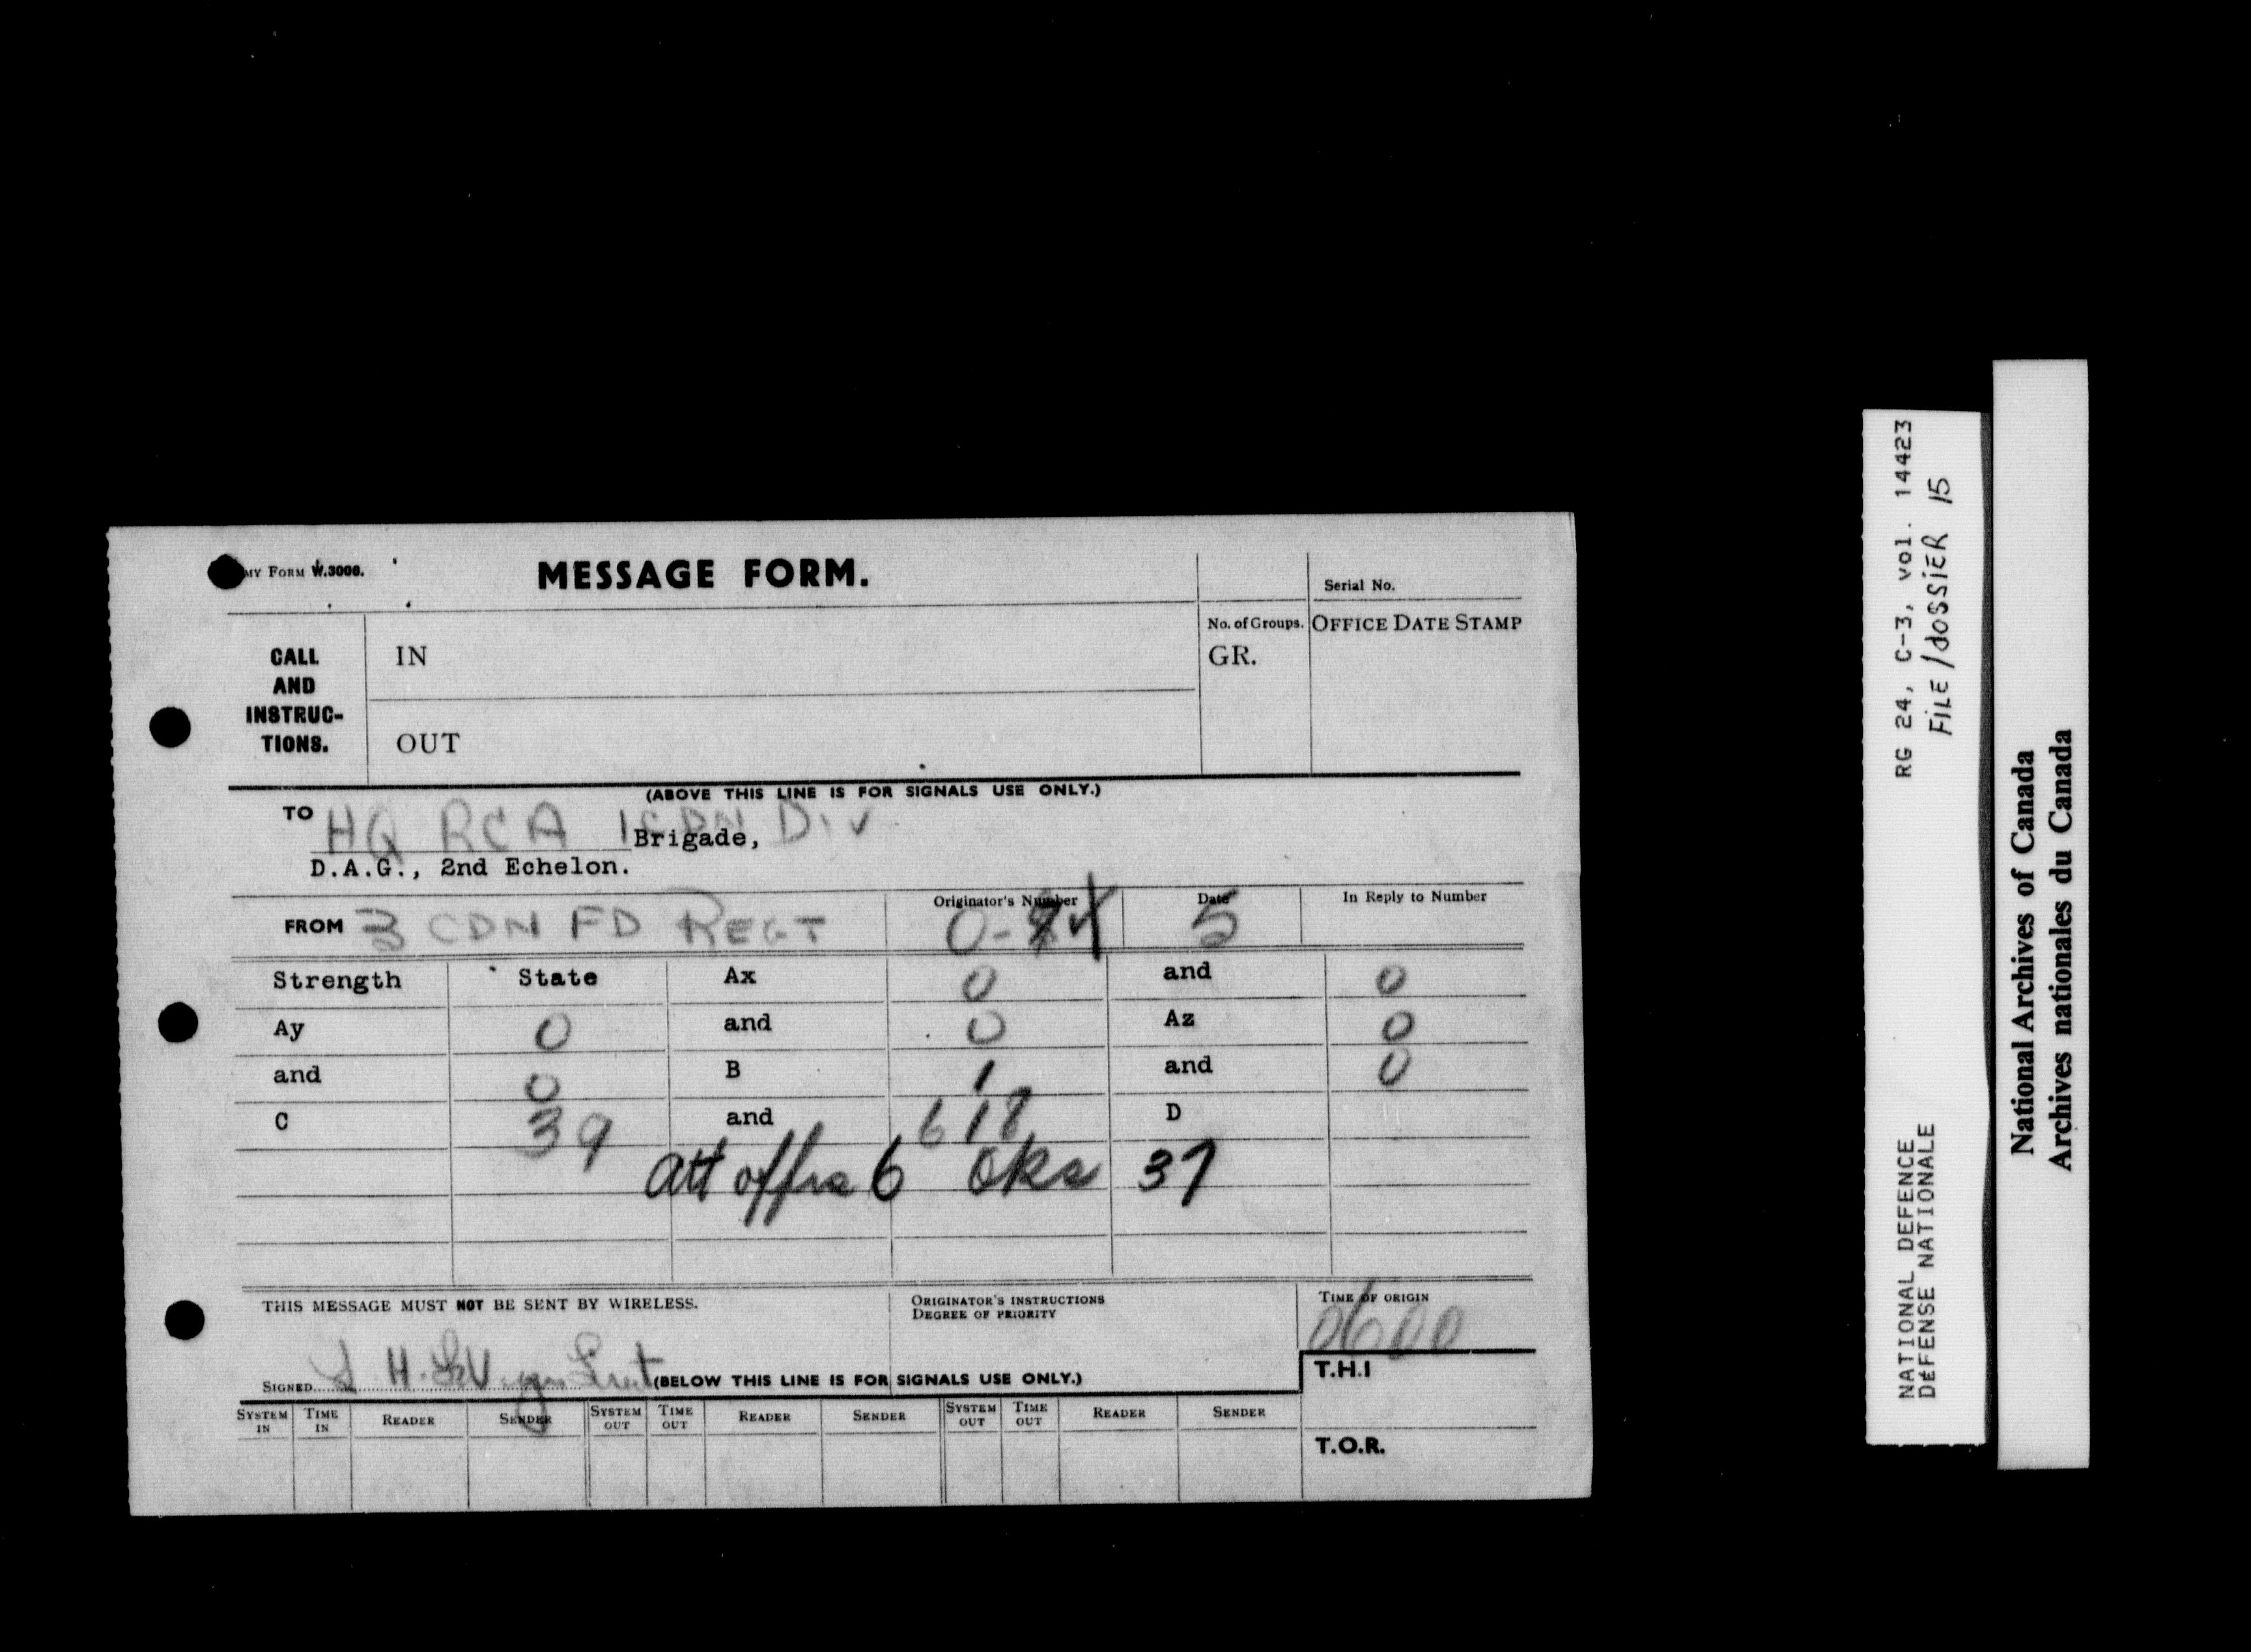 MY FORM W.3000.
MESSAGE FORM.
Serial No.
CALL AND INSTRUC-TIONS.
IN
No. of Groups.
GR.
OFFICE DATE STAMP
OUT
(ABOVE THIS LINE IS FOR SIGNALS USE ONLY.)
TO HQ RCA 1 CDN Div
Brigade,
D.A.G., 2nd Echelon.
FROM 3 CDN FD REGT
Originator's Number
Date 5
In Reply to Number
Strength State Ax 0 and 0
Ay 0 and 0 Az 0
and 0 B 1 and 0
C 39 and 618 D
att offrs 6 Oks 37
THIS MESSAGE MUST NOT BE SENT BY WIRELESS.
ORIGINATOR'S INSTRUCTIONS
DEGREE OF PRIORITY
TIME OF ORIGIN
0600
SIGNED H. Lieut
(BELOW THIS LINE IS FOR SIGNALS USE ONLY.)
T.H.I
SYSTEM IN TIME IN READER SENDER SYSTEM OUT TIME OUT READER SENDER SYSTEM OUT TIME OUT READER SENDER
T.O.R.
RG 24, C-3, vol. 14423
FILE/dossier 15
NATIONAL DEFENCE
DÉFENSE NATIONALE
National Archives of Canada
Archives nationales du Canada